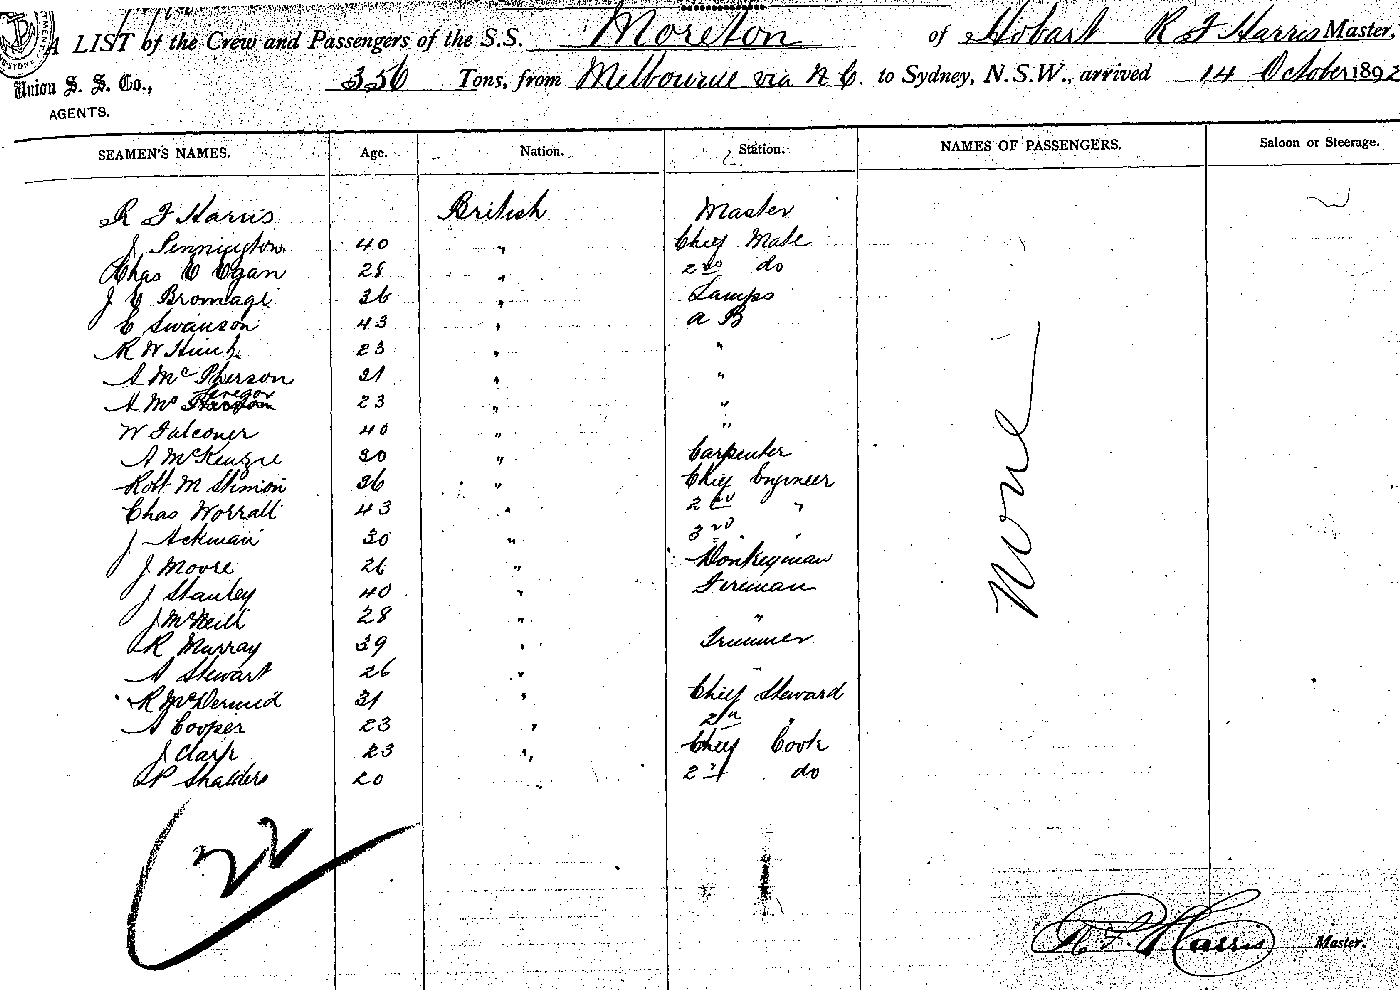 A LIST of the Crew and Passengers of the S.S. Moreton of Hobart R F Harris Master,
Union S. S. Co., 356 Tons, from Melbourne via N C. to Sydney, N.S.W., arrived 14 October 1892
AGENTS.
SEAMEN'S NAMES. Age. Nation. Station. NAMES OF PASSENGERS. Saloon or Steerage.
R F Harris British Master
J Pennington 40 " Chief Mate
Chas E Egan 28 " 2nd do
J E Bromage 36 " Lamps
E Swanson 43 " A B
R W 23 " "
A McPherson 31 " "
A Mc Gregor 23 " "
W Falconer 40 " "
A McKenzie 30 " Carpenter
Robt M Simon 36 " Chief Engineer
Chas Worrall 43 " 2nd "
J Ackman 30 " 3rd
J Moore 26 " Donkeyman
J Stanley 40 " Fireman
J McNeill 28 " "
R Murray 39 " Trimmer
A Stewart 26 " "
R McDermid 31 " Chief Steward
A Cooper 23 " 2nd "
J Clark 23 " Chief Cook
P Shalders 20 " 2nd do
None
22
R F Harris Master.